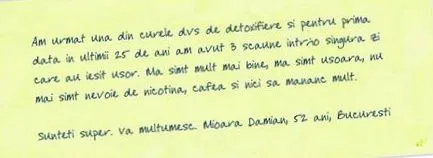 Am urmat una din curele dvs de detoxifiere si pentru prima
data in ultimii 25 de ani am avut 3 scaune intr-o singura zi
care au iesit usor. Ma simt mult mai bine, ma simt usoara, nu
mai simt nevoie de nicotina, cafea si nici sa mananc mult.
Sunteti super. Va multumesc. Mioara Damian, 52 ani, Bucuresti